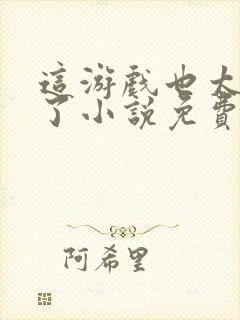 這游戲也太
了小說免費
阿希里